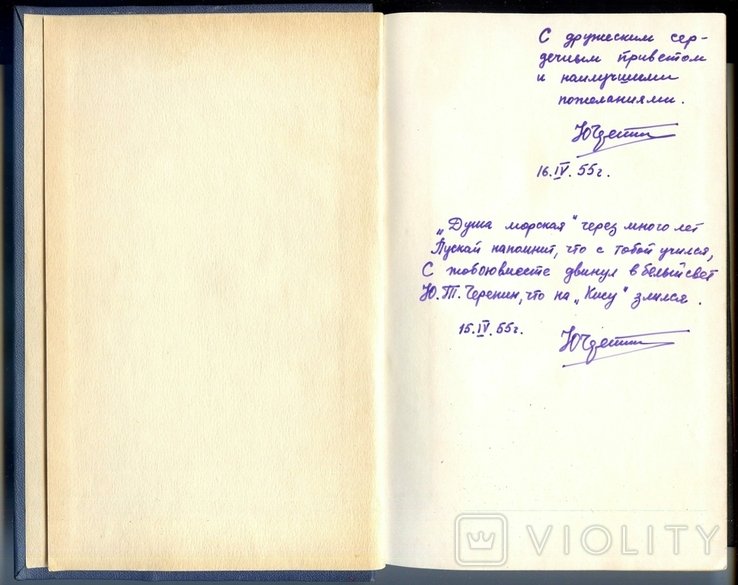 С дружеским сер-
дечным приветом
и наилучшими
пожеланиями.
16.IV.55г.
„Душа морская" через много лет
Пускай напомнит, что с тобой учился,
С тобою вместе двинул в белый свет
Ю.Т. Черенин, что на „Кису" злился.
15.IV.55г.
VIOLITY